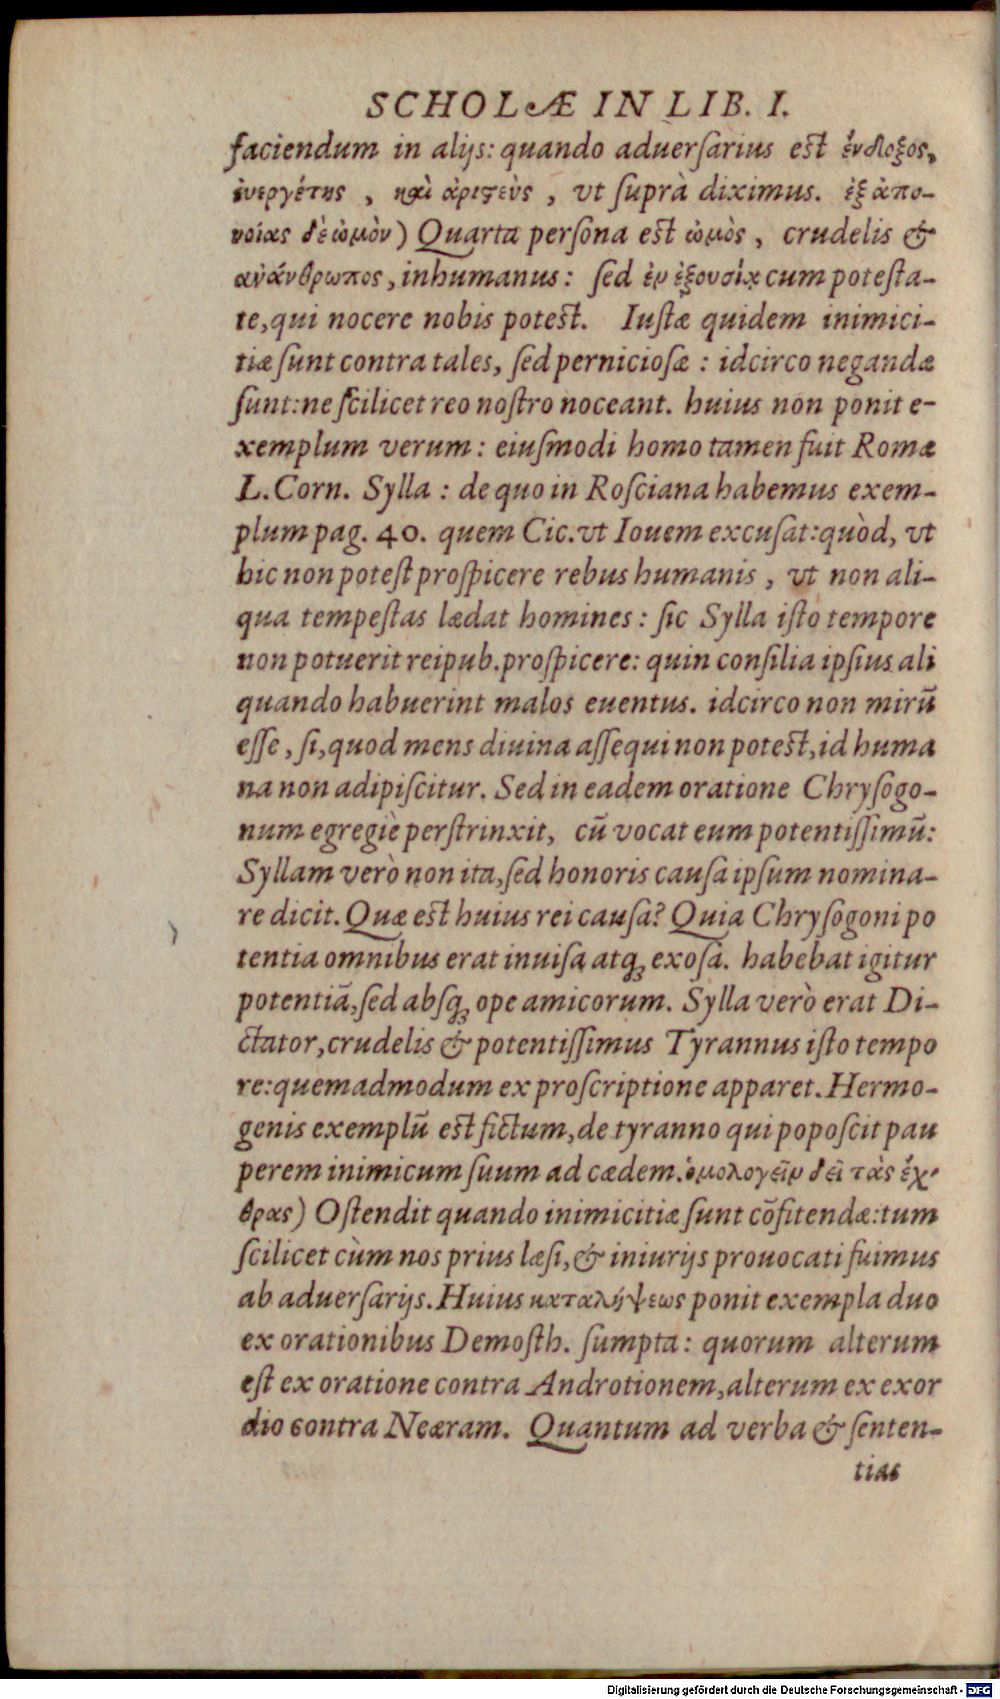 SCHOLÆ IN LIB. I.
faciendum in alijs: quando aduerſarius eſt ἔνδοξος,
ἐυεργέτης, καὶ ἀριϛεὺς, vt ſuprà diximus. ἐξ ἀπο-
νοίας δὲ ὠμὸν) Quarta perſona eſt ὠμὸς, crudelis &
ανάνθρωπος, inhumanus: ſed ἐν ἐξουσίᾳ cum poteſta-
te, qui nocere nobis poteſt. Iuſtæ quidem inimici-
tiæ ſunt contra tales, ſed pernicioſæ: idcirco negandæ
ſunt: ne ſcilicet reo noſtro noceant. huius non ponit e-
xemplum verum: eiuſmodi homo tamen fuit Romæ
L. Corn. Sylla: de quo in Roſciana habemus exem-
plum pag. 40. quem Cic. vt Iouem excuſat: quòd, vt
hic non poteſt proſpicere rebus humanis, vt non ali-
qua tempeſtas lædat homines: ſic Sylla iſto tempore
non potuerit reipub. proſpicere: quin conſilia ipſius ali
quando habuerint malos euentus. idcirco non mirũ
eſſe, ſi, quod mens diuina aſſequi non poteſt, id huma
na non adipiſcitur. Sed in eadem oratione Chryſogo-
num egregiè perſtrinxit, cũ vocat eum potentiſſimũ:
Syllam verò non ita, ſed honoris cauſa ipſum nomina-
re dicit. Quæ eſt huius rei cauſa? Quia Chryſogoni po
tentia omnibus erat inuiſa atq; exoſa. habebat igitur
potentiã, ſed abſq; ope amicorum. Sylla verò erat Di-
ctator, crudelis & potentiſſimus Tyrannus iſto tempo
re: quemadmodum ex proſcriptione apparet. Hermo-
genis exemplũ eſt fictum, de tyranno qui popoſcit pau
perem inimicum ſuum ad cædem. ὁμολογεῖν δεῖ τὰς ἔχ-
θρας) Oſtendit quando inimicitiæ ſunt cõfitendæ: tum
ſcilicet cùm nos prius læſi, & iniurijs prouocati fuimus
ab aduerſarijs. Huius καταλήψεως ponit exempla duo
ex orationibus Demoſth. ſumpta: quorum alterum
eſt ex oratione contra Androtionem, alterum ex exor
dio contra Neæram. Quantum ad verba & ſenten-
tias
Digitalisierung gefördert durch die Deutsche Forschungsgemeinschaft - DFG